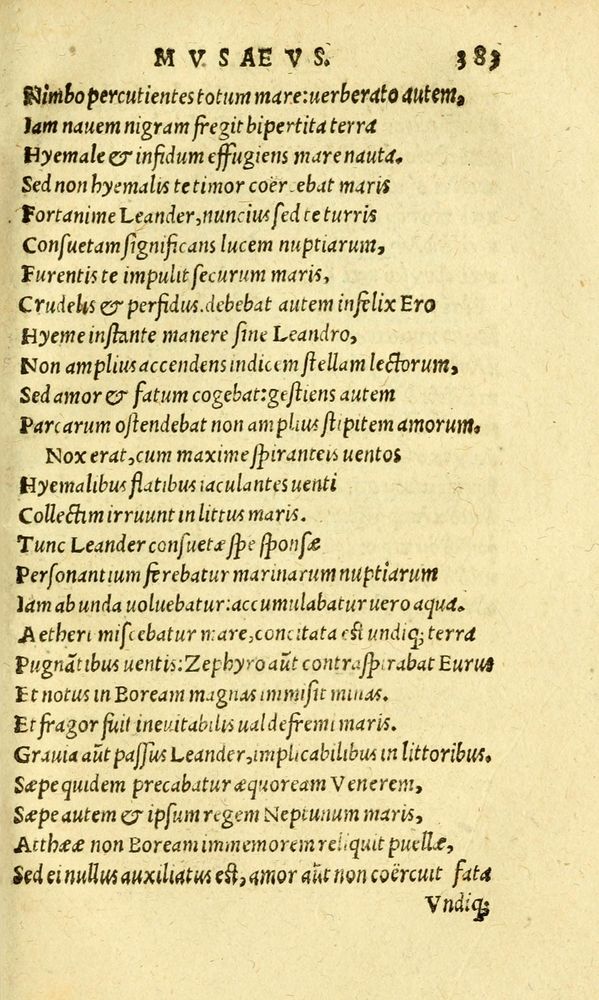 MVSAEVS. 383
Nimbo percutientes totum mare: uerberato autem,
Iam nauem nigram fregit bipertita terra
Hyemale & infidum effugiens mare nauta.
Sed non hyemalis te timor coër ebat maris
Fortanime Leander, nuncius sed te turris
Consuetam significans lucem nuptiarum,
Furentis te impulit securum maris,
Crudelis & perfidus. debebat autem infelix Ero
Hyeme instante manere sine Leandro,
Non amplius accendens indicem stellam lectorum,
Sed amor & fatum cogebat: gestiens autem
Parcarum ostendebat non amplius stipitem amorum.
Nox erat, cum maxime spiranteis uentos
Hyemalibus flatibus iaculantes uenti
Collectim irruunt in littus maris.
Tunc Leander consuetæ spe sponsæ
Personantium ferebatur marinarum nuptiarum
Iam ab unda uoluebatur: accumulabatur uero aqua.
Aetheri miscebatur mare, concitata est undiq; terra
Pugnātibus uentis: Zephyro aūt contraspirabat Eurus
Et notus in Boream magnas immisit minas.
Et fragor fuit ineuitabilis ualde fremi maris.
Grauia aūt passus Leander, implicabilibus in littoribus.
Sæpe quidem precabatur æquoream Venerem,
Sæpe autem & ipsum regem Neptunum maris,
Atthææ non Boream immemorem reliquit puellæ,
Sed ei nullus auxiliatus est, amor aūt non coërcuit fata
Vndiq;